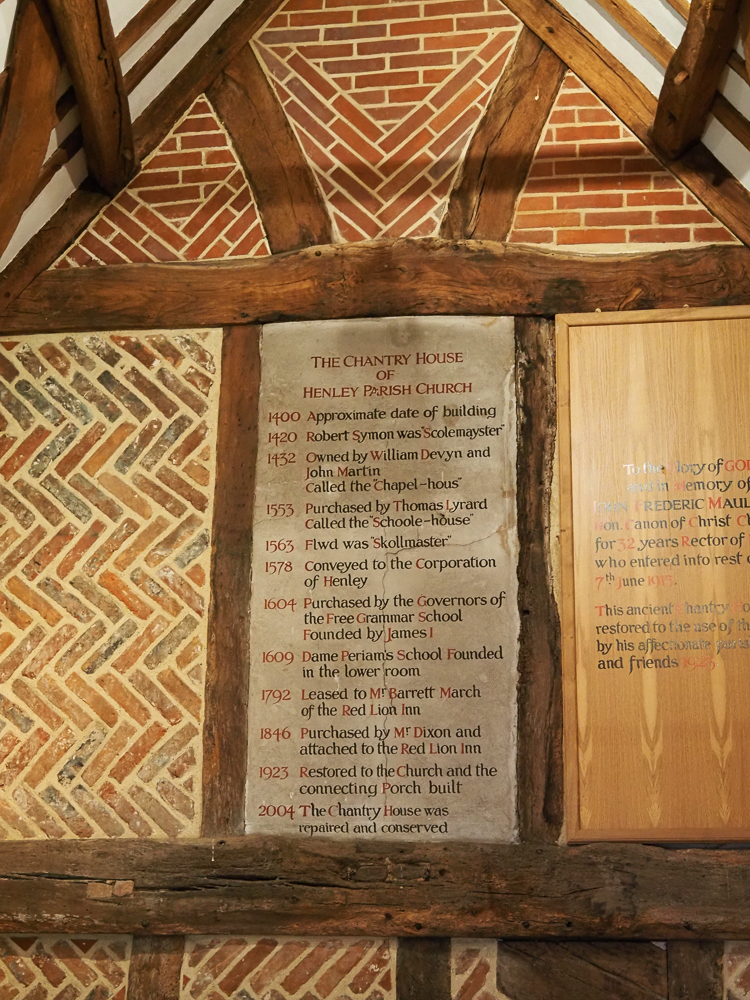 THE CHANTRY HOUSE
OF
HENLEY PARISH CHURCH
1400 Approximate date of building
1420 Robert Symon was "Scolemayster"
1432 Owned by William Devyn and
John Martin
Called the "Chapel-hous"
1553 Purchased by Thomas Lyrard
Called the "Schoole-house"
1563 Flwd was "Skollmaster"
1578 Conveyed to the Corporation
of Henley
1604 Purchased by the Governors of
the Free Grammar School
Founded by James I
1609 Dame Periam's School Founded
in the lower room
1792 Leased to Mr Barrett March
of the Red Lion Inn
1846 Purchased by Mr Dixon and
attached to the Red Lion Inn
1923 Restored to the Church and the
connecting Porch built
2004 The Chantry House was
repaired and conserved
To the Glory of GOD
and in memory of
JOHN FREDERIC MAUL
Hon. Canon of Christ
for 32 years Rector of
who entered into rest
7th June 1915.
This ancient Chantry
restored to the use of
by his affectionate
and friends 1923